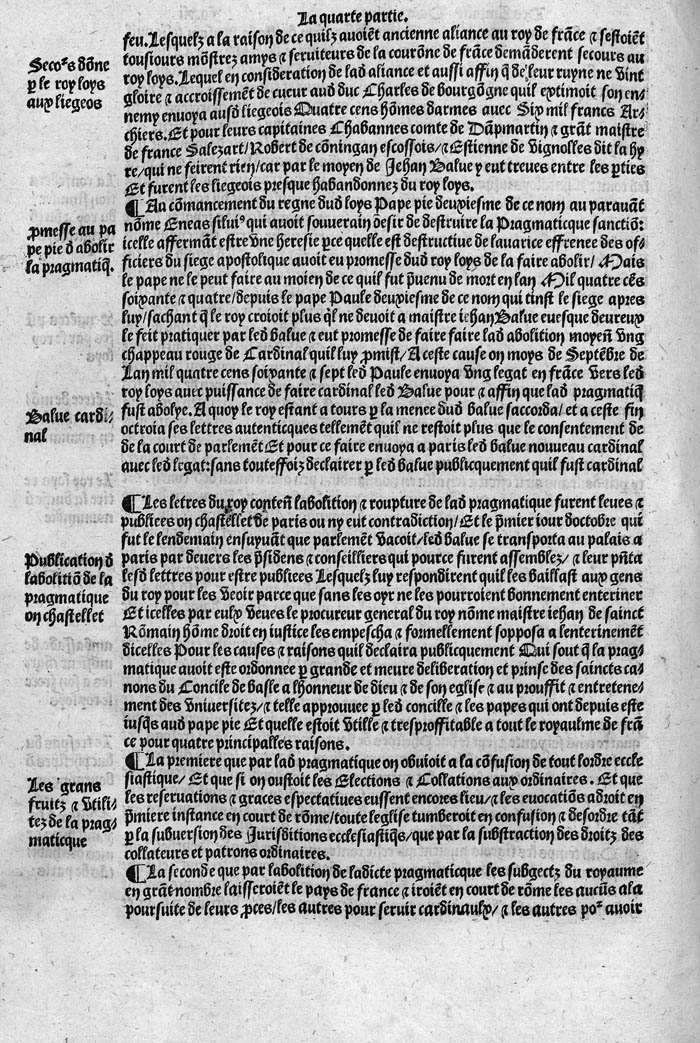 La quarte partie.
feu. Lesquelz a la raison de ce quilz avoiẽt ancienne aliance au roy de frãce ⁊ sestoiẽt
tousiours mõstrez amys ⁊ serviteurs de la courõne de frãce demãderent secours au
roy loys. Lequel en consideration de lad̃ aliance et aussi affin q̃ de leur ruyne ne vint
gloire ⁊ accroissemẽt de cueur aud̃ duc Charles de bourgõgne quil extimoit son en⸗
nemy envoya ausd̃ liegeois Quatre cens hõmes darmes avec Six mil francs Ar⸗
chiers. Et pour leurs capitaines Chabannes comte de Dãpmartin ⁊ grãt maistre
de france Salezart/Robert de cõningan escossois/⁊ Estienne de vignolles dit la hy
re/qui ne feirent rien/car par le moyen de Jehan Balue y eut treves entre les ꝑties
Et furent les liegeois presque habandonnez du roy loys.
Seco⁹s dõne
ꝑ le roy loys
aux liegeois
¶ Au cõmancement du regne dud̃ loys Pape pie deuxiesme de ce nom au paravãt
nõme Eneas silui⁹ qui avoit souverain desir de destruire la Pragmaticque sanctiõ:
icelle affermãt estre vne heresie ꝑce quelle est destructive de lavarice effrenee des of⸗
ficiers du siege apostolique avoit eu promesse dud̃ roy loys de la faire abolir/Mais
le pape ne le peut faire au moien de ce quil fut p̃venu de mort en lan Mil quatre cẽs
soixante ⁊ quatre/depuis le pape Paule deuxiesme de ce nom qui tinst le siege apres
luy/sachant q̃ le roy croioit plus q̃l ne devoit a maistre iehan Balue evesque devreux
le feit pratiquer par led̃ balue ⁊ eut promesse de faire faire lad̃ abolition moyen̄ vng
chappeau rouge de Cardinal quil luy ꝓmist/A ceste cause on moys de Septẽbre de
Lan mil quatre cens soixante ⁊ sept led̃ Paule envoya vng legat en frãce vers led̃
roy loys avec puissance de faire cardinal led̃ Balue pour ⁊ affin que lad̃ pragmatiq̃
fust abolye. A quoy le roy estant a tours ꝑ la menee dud̃ balue saccorda/et a ceste fin
octroia ses lettres autenticques tellemẽt quil ne restoit plus que le consentement de
de la court de parlemẽt Et pour ce faire envoya a paris led̃ balue nouveau cardinal
avec led̃ legat: sans touteffoiz declairer ꝑ led̃ balue publicquement quil fust cardinal
ꝓmesse au pa
pe pie d̃ abolir
la pragmatiq̃.
Balue cardi⸗
nal
¶ Les letres du roy conten̄ labolition ⁊ roupture de lad̃ pragmatique furent leues ⁊
publiees on chastellet de paris ou ny eut contradiction/Et le p̃mier iour doctobre qui
fut le lendemain ensuyvãt que parlemẽt vacoit/led̃ balue se transporta au palais a
paris par devers les p̃sidens ⁊ conseilliers qui pource furent assemblez/⁊ leur p̃ñta
lesd̃ lettres pour estre publiees Lesquelz luy respondirent quil les baillast aux gens
du roy pour les veoir parce que sans les oyr ne les pourroient bonnement enteriner
Et icelles par eulx veues le procureur general du roy nõme maistre iehan de sainct
Rõmain hõme droit en iustice les empescha ⁊ formellement sopposa a lenterinemẽt
dicelles Pour les causes ⁊ raisons quil declaira publicquement Qui sont q̃ la prag⸗
matique avoit este ordonnee ꝑ grande et meure deliberation et prinse des saincts ca⸗
nons du Concile de basle a lhonneur de dieu ⁊ de son eglise ⁊ au prouffit ⁊ entretene⸗
ment des Vniversitez/⁊ telle approuvee ꝑ led̃ concille ⁊ les papes qui ont depuis este
iusq̃s aud̃ pape pie Et quelle estoit vtille ⁊ tresproffitable a tout le royaulme de frã
ce pour quatre principalles raisons.
Publication d̃
labolitiõ de la
pragmatique
on chastellet
¶ La premiere que par lad̃ pragmatique on obvioit a la cõfusion de tout lordre eccle
siastique/ Et que si on oustoit les Elections ⁊ Collations aux ordinaires. Et que
les reservations ⁊ graces espectatives eussent encores lieu/⁊ les evocatiõs adroit en
p̃miere instance en court de rõme/toute leglise tumberoit en confusion ⁊ desordre tãt
ꝑ la subversion des Jurisditions ecclesiastiq̃s/que par la substraction des droitz des
collateurs et patrons ordinaires.
Les grans
fruitz ⁊ vtili⸗
tez de la prag⸗
maticque
¶ La seconde que par labolition de ladicte pragmaticque les subgectz du royaume
en grãt nombre laisseroiẽt le pays de france ⁊ iroiẽt en court de rõme les aucũs a la
poursuite de leurs ꝓces/les autres pour servir cardinaulx/⁊ les autres po⁹ avoir